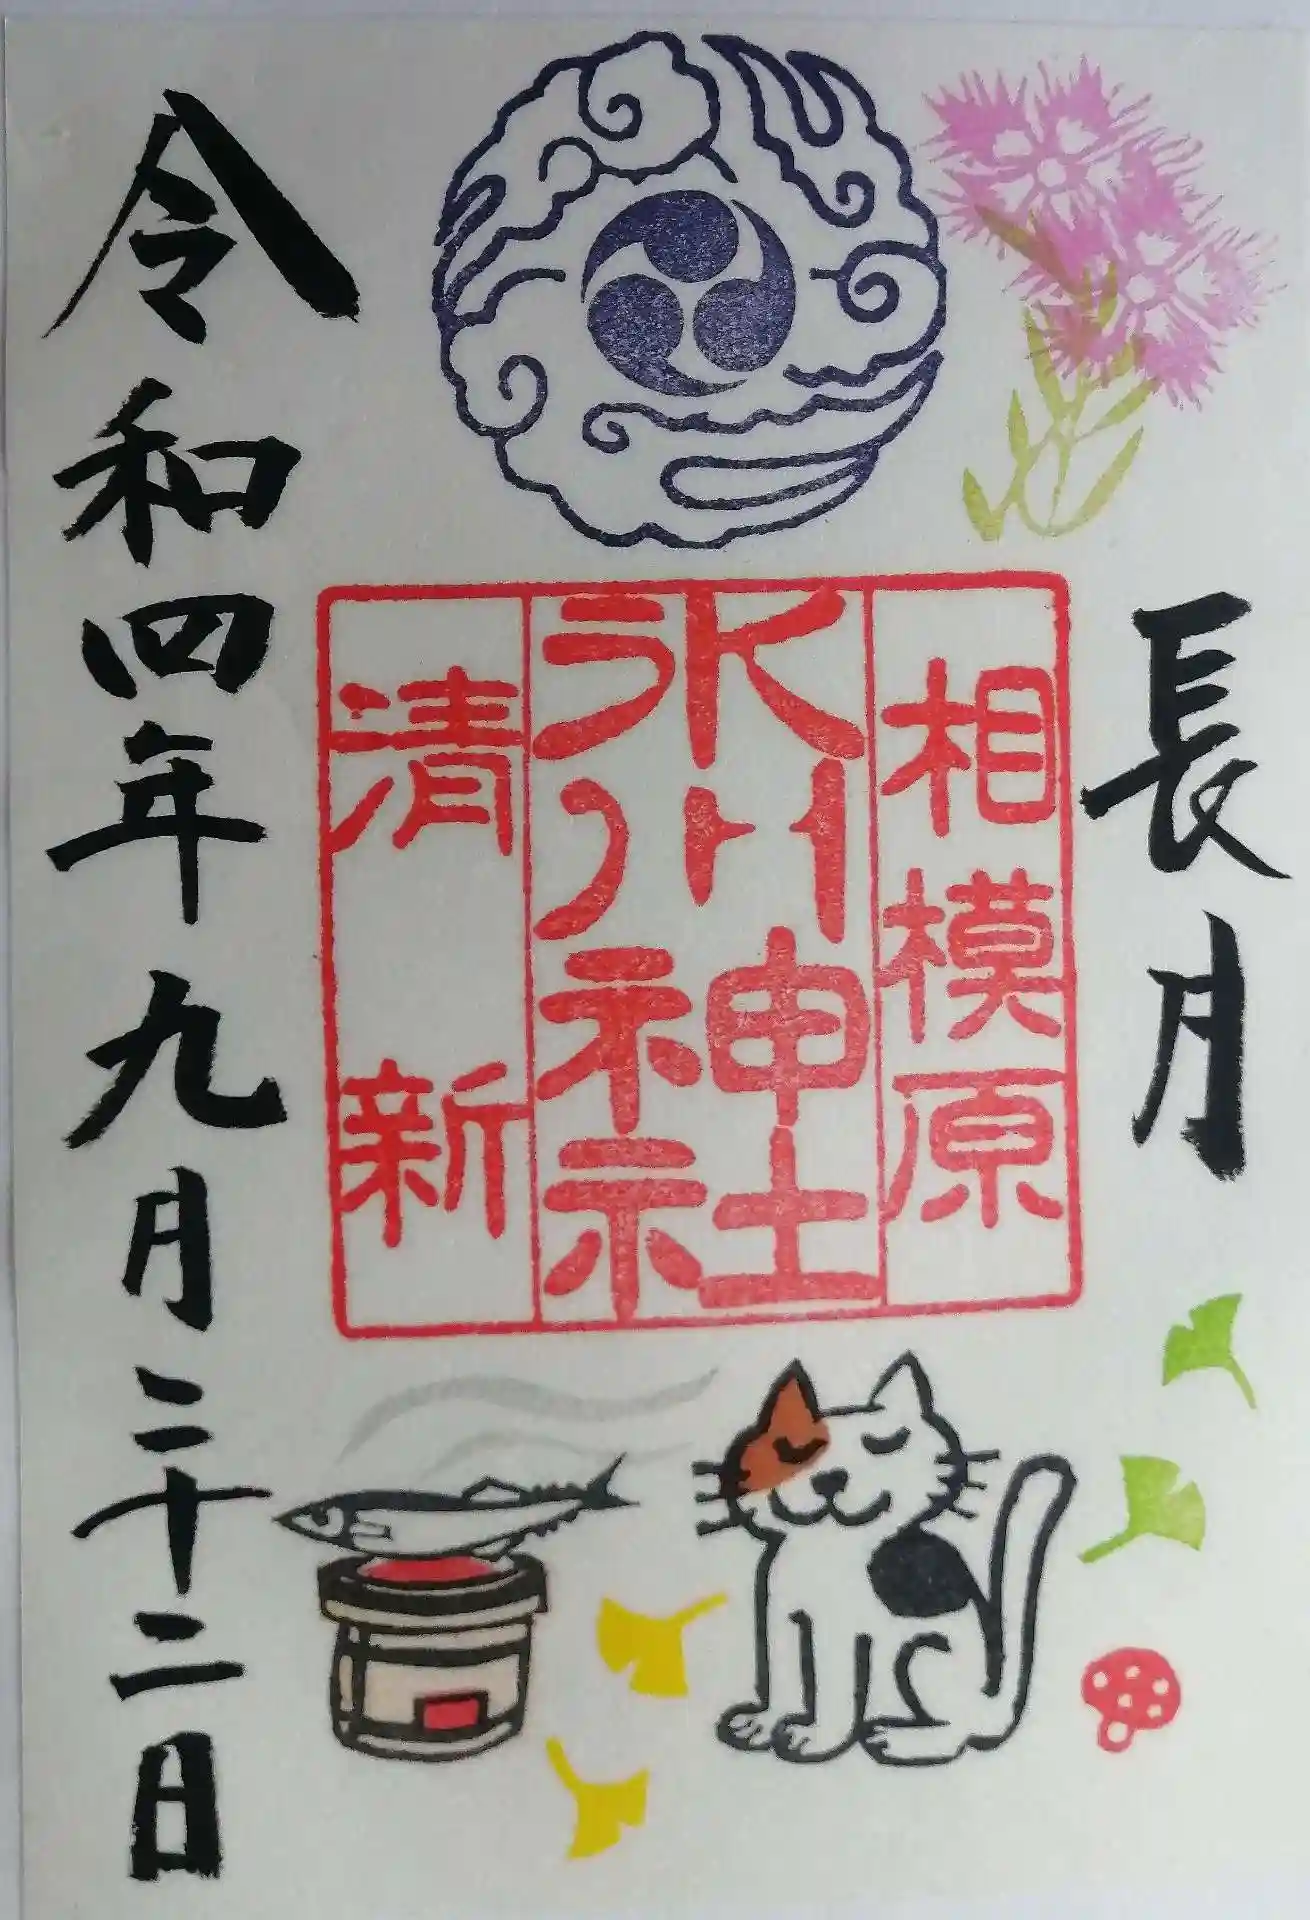 長月
相模原
氷川神社
清新
令和四年九月二十二日